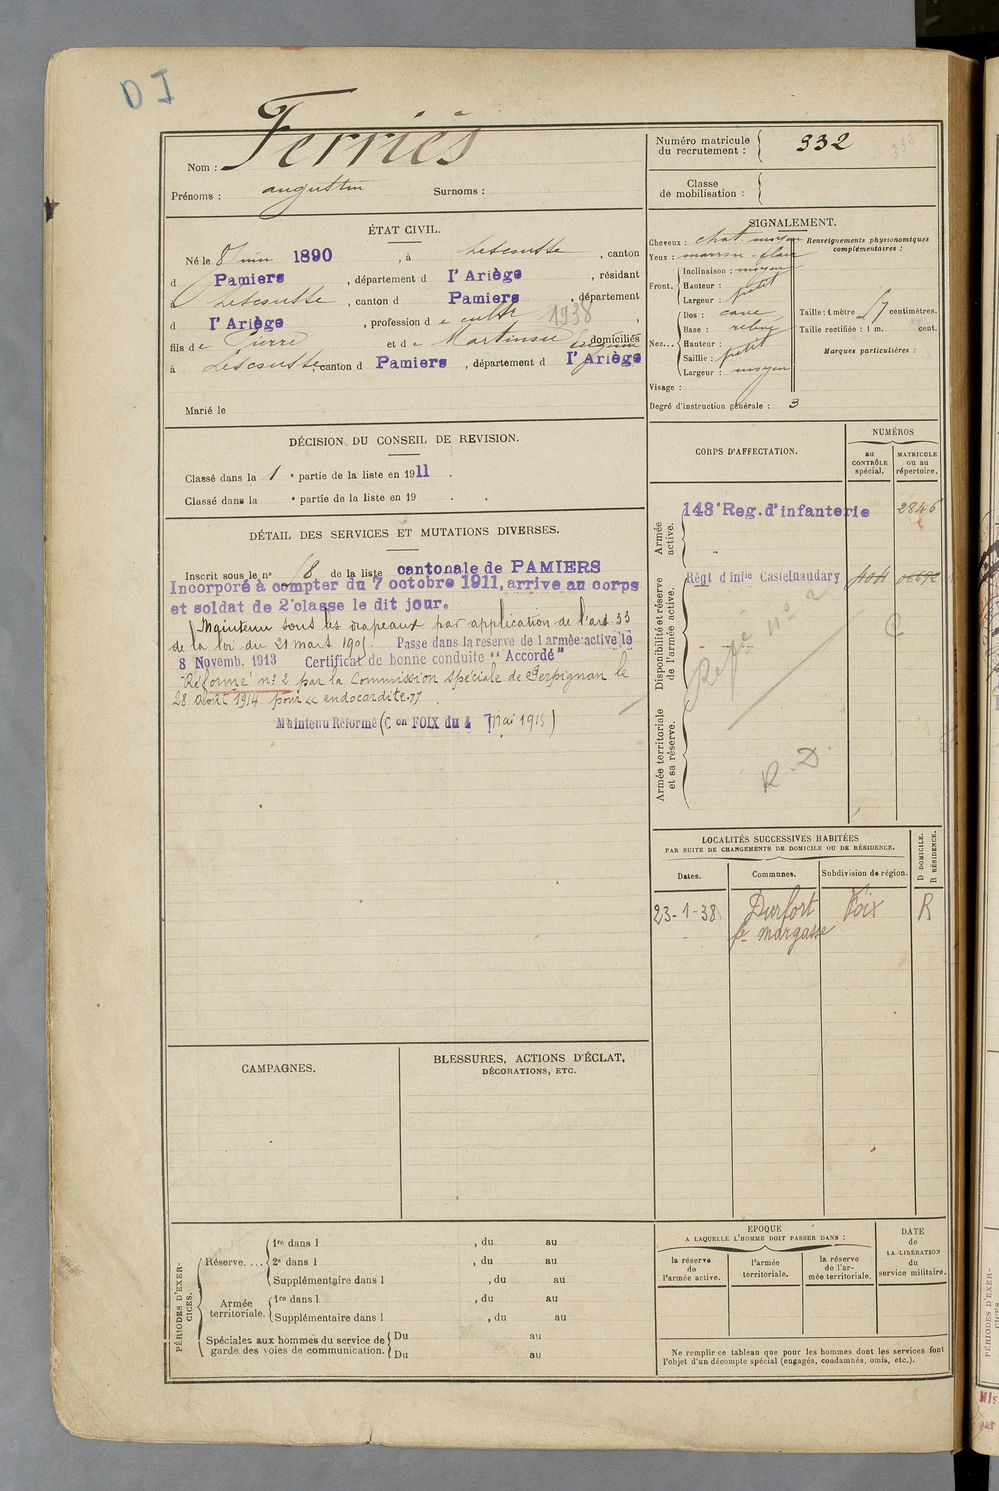 DJ
Nom : Ferriès
Prénoms : augustin Surnoms :
Numéro matricule du recrutement : 332
332
Classe de mobilisation :
ÉTAT CIVIL.
Né le 8 juin 1890, à Lescousse, canton
d Pamiers, département d l'Ariège, résidant
à Lescousse, canton d Pamiers, département
d l'Ariège, profession d e cultr 1938,
fils de Pierre et de Martinsu domiciliés
à Lescousse, canton d Pamiers, département d l'Ariège
Marié le
SIGNALEMENT.
Cheveux : chat. moyen
Yeux : marron - clair
Front. Inclinaison : moyen
Hauteur :
Largeur : petit
Nez... Dos : cave
Base : relevé
Hauteur :
Saillie : petit
Largeur : moyen
Visage :
Degré d'instruction générale : 3
Renseignements physionomiques complémentaires :
Taille : 1 mètre 57 centimètres.
Taille rectifiée : 1 m. cent.
Marques particulières :
DÉCISION DU CONSEIL DE REVISION.
Classé dans la 1e partie de la liste en 1911.
Classé dans la e partie de la liste en 19 .
DÉTAIL DES SERVICES ET MUTATIONS DIVERSES.
Inscrit sous le n° 18 de la liste cantonale de PAMIERS
Incorporé à compter du 7 octobre 1911, arrive au corps
et soldat de 2e classe le dit jour.
Maintenu sous les drapeaux par application de l'art 33
de la loi du 21 mars 1905. Passe dans la reserve de l armée active le
8 Novemb. 1913 Certificat de bonne conduite "Accordé"
Réformé n° 2 par la Commission spéciale de Perpignan le
28 août 1914 pour "endocardite."
Maintenu Réformé (Con FOIX du 4 mai 1915)
CORPS D'AFFECTATION.
NUMÉROS
au CONTRÔLE spécial.
MATRICULE ou au répertoire.
Armée active.
143e Reg. d'infanterie 2846
Disponibilité et réserve de l'armée active.
Régt d'infie Castelnaudary
Réfé n° 2
C
Armée territoriale et sa réserve.
R. D.
LOCALITÉS SUCCESSIVES HABITÉES
PAR SUITE DE CHANGEMENTS DE DOMICILE OU DE RÉSIDENCE.
Dates. Communes. Subdivision de région. D DOMICILE. R RÉSIDENCE.
23-1-38 Durfort Foix R
fe margasse
CAMPAGNES.
BLESSURES, ACTIONS D'ÉCLAT,
DÉCORATIONS, ETC.
PÉRIODES D'EXERCICES.
Réserve.... 1re dans l , du au
2e dans l , du au
Supplémentaire dans l , du au
Armée territoriale. 1re dans l , du au
Supplémentaire dans l , du au
Spéciales aux hommes du service de garde des voies de communication. Du au
Du au
EPOQUE
A LAQUELLE L'HOMME DOIT PASSER DANS :
la réserve de l'armée active.
l'armée territoriale.
la réserve de l'armée territoriale.
DATE de LA LIBÉRATION du service militaire.
Ne remplir ce tableau que pour les hommes dont les services font
l'objet d'un décompte spécial (engagés, condamnés, omis, etc.).